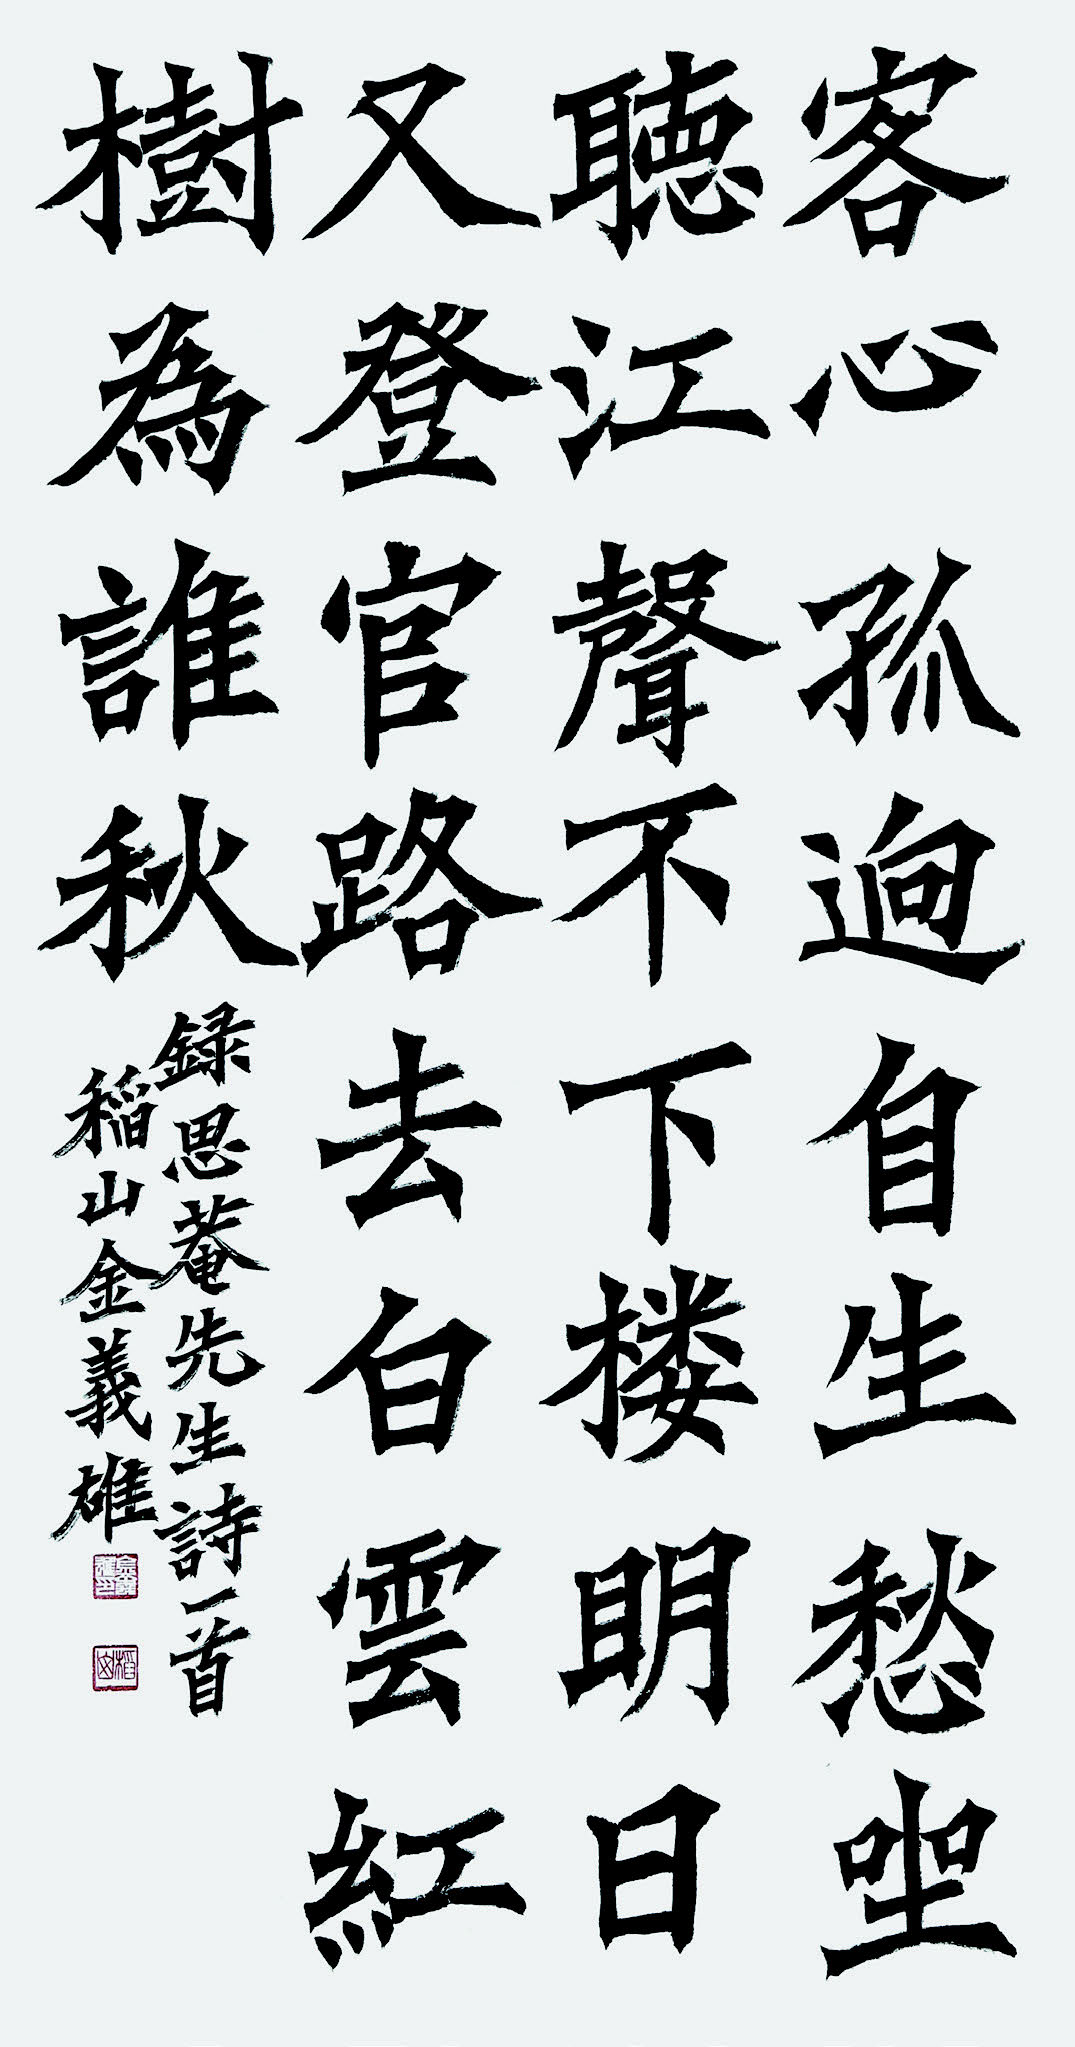 客心孤逈自生愁坐
聽江聲不下楼明日
又登官路去白雲紅
樹為誰秋
録思菴先生詩一首
稲山金義雄
金義雄印
稻山